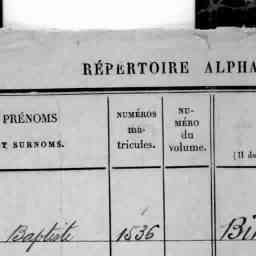 RÉPERTOIRE ALPHA
PRÉNOMS
T SURNOMS.
NUMÉROS
ma-
tricules.
NU-
MÉRO
du
volume.
(Il du
Baptiste
1536
Bi